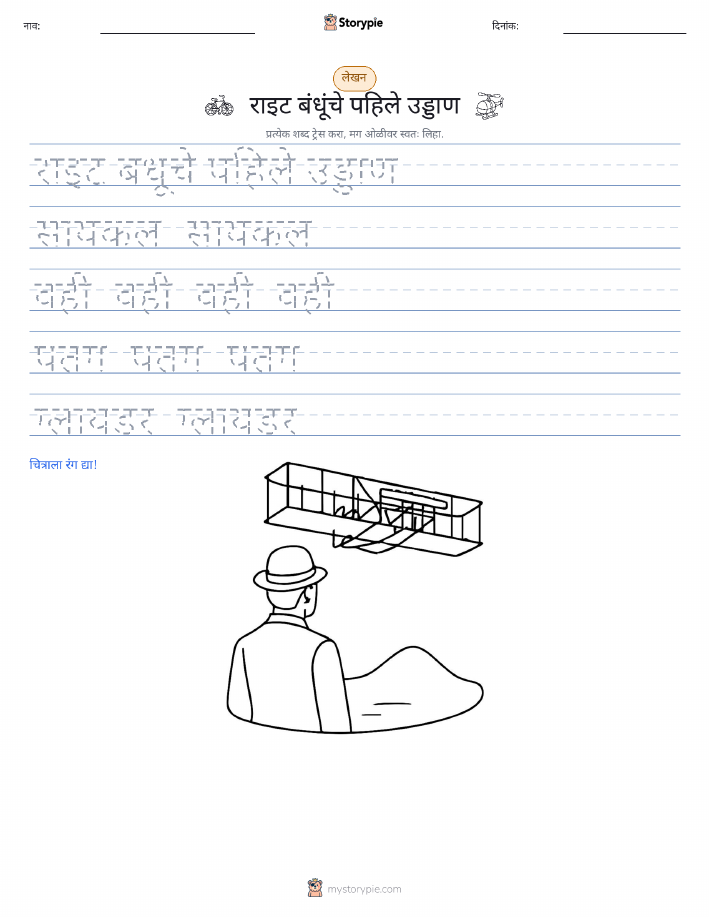 नाव:
Storypie
दिनांक:
लेखन
राइट बंधूंचे पहिले उड्डाण
प्रत्येक शब्द ट्रेस करा, मग ओळीवर स्वतः लिहा.
राइट बधूचे पहिले उड्डाण
सायकल सायकल
वही वही वही वही
पतग पतग पतग
ग्लायडर ग्लायडर
चित्राला रंग द्या!
mystorypie.com